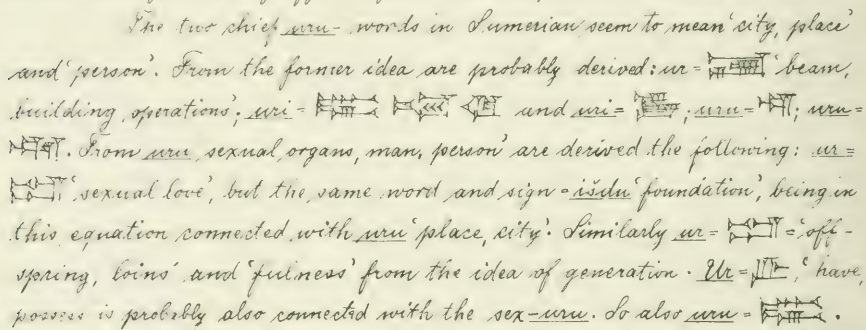 The two chief uru- words in Sumerian seem to mean 'city, place'
and 'person'. From the former idea are probably derived: ur = 'beam,
building operations'; uri = and uri = ; uru = ; uru =
. From uru 'sexual organs, man, person' are derived the following: ur =
'sexual love', but the same word and sign = išdu 'foundation', being in
this equation connected with uru 'place, city'. Similarly ur = = 'off-
spring, loins' and 'fulness' from the idea of generation. Ur = , 'have,
possess is probably also connected with the sex-uru. So also uru = .